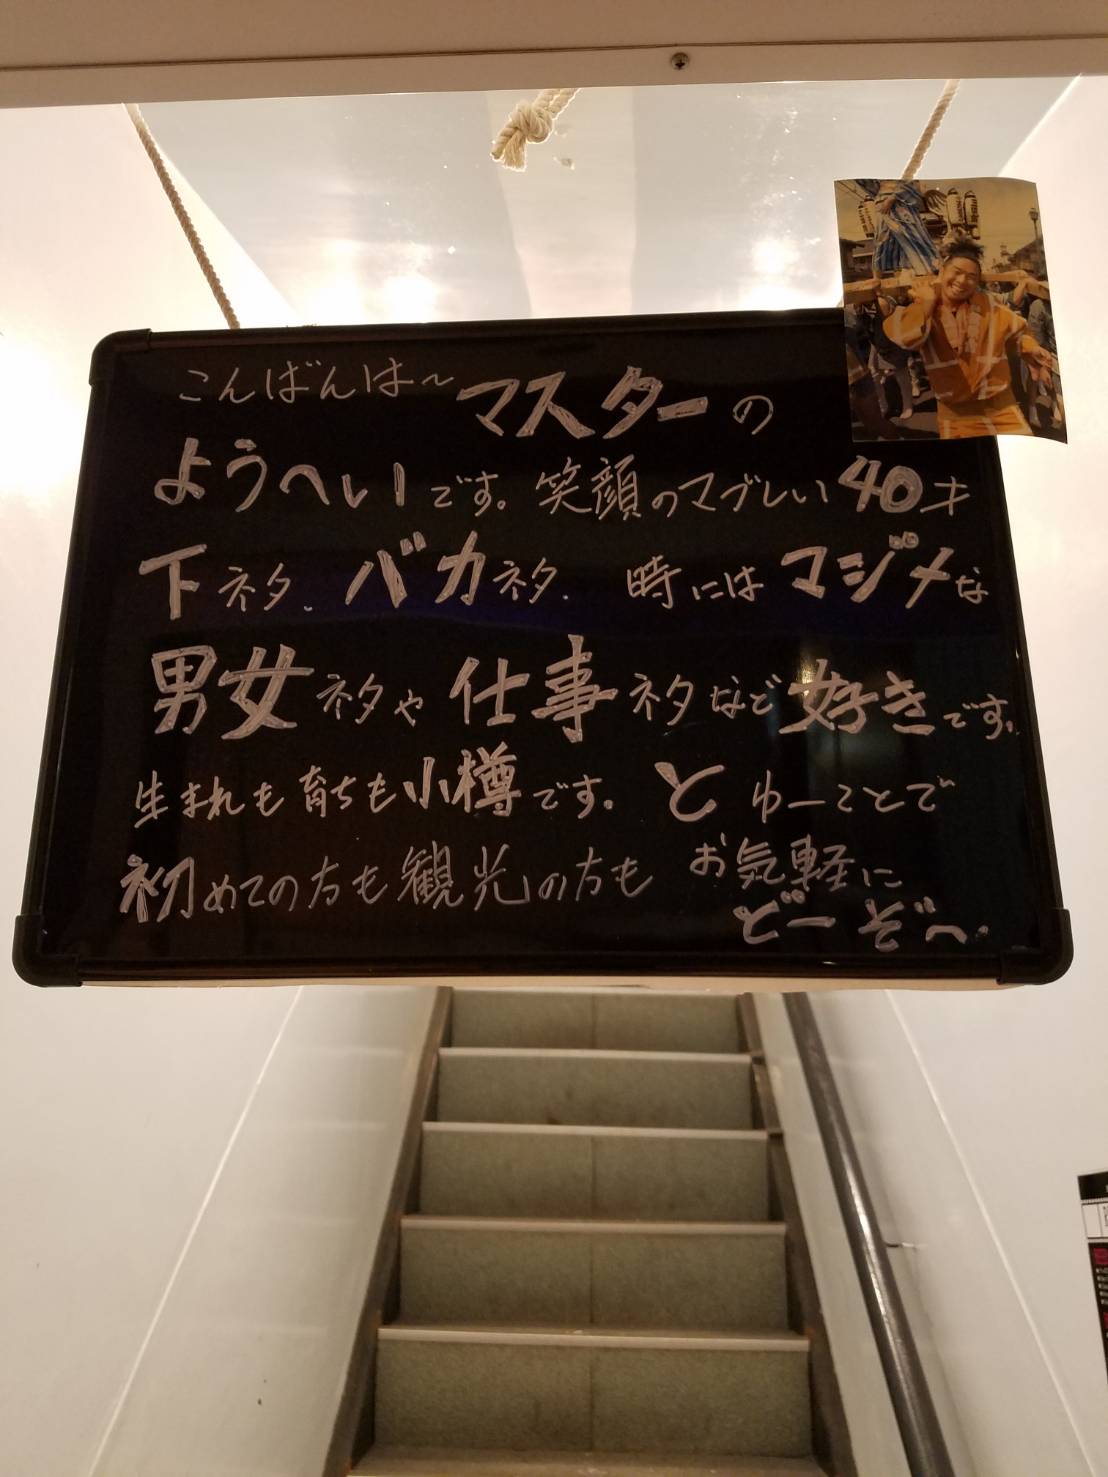 こんばんは〜マスターの
ようへいです。笑顔のマブしい40才
下ネタ、バカネタ、時にはマジメな
男女ネタや仕事ネタなど好きです。
生まれも育ちも小樽です。とゆーことで
初めての方も観光の方もお気軽に
どーぞへ。